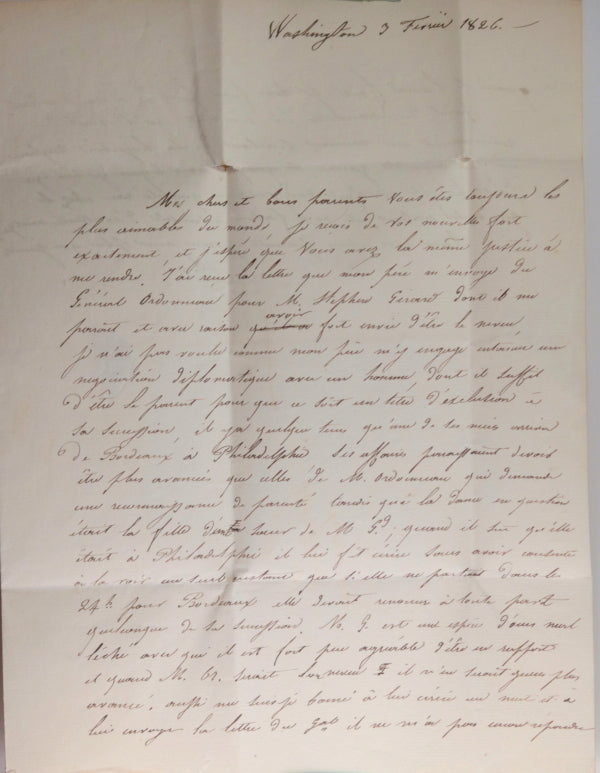 Washington 3 Fevrier 1826.
Mes chers et bons parents vous êtes toujours les
plus aimable du monde je reçois de vos nouvelle fort
exactement et j'espère que vous avez la même justice à
me rendre. J'ai reçu la lettre que mon père m'envoye du
Général Ordonneau pour M. Stephen Girard dont il me
parait et avec raison avoir fort envie d'être le neveu,
je n'ai pas voulu comme mon père m'y engage entamer une
negociation diplomatique avec un homme, dont il suffit
d'être le parent pour que ce soit un titre d'exclusion à
sa succession, il y a quelque tems qu'une de ses nieces arriva
de Bordeaux à Philadelphie ses affaires paraissaient devoir
être plus avancées que celles de M. Ordonneau qui demande
une reconnaissance de parenté tandis que la dame en question
était la fille d'une sœur de M. Gd; quand il sut qu'elle
était à Philadelphie il lui fit écrire sans avoir consenti
à la voir un seul instant que si elle ne partait dans les
24h pour Bordeaux elle devait renoncer à toute part
quelconque de sa succession. M. G. est une espèce d'ours mal
léché avec qui il est fort peu agréable d'être en rapport
et quand M. O. serait son neveu il n'en serait guère plus
avancé, aussi me suis-je borné à lui écrire un mot et à
lui envoyer la lettre du Gal il ne m'a pas encore répondu